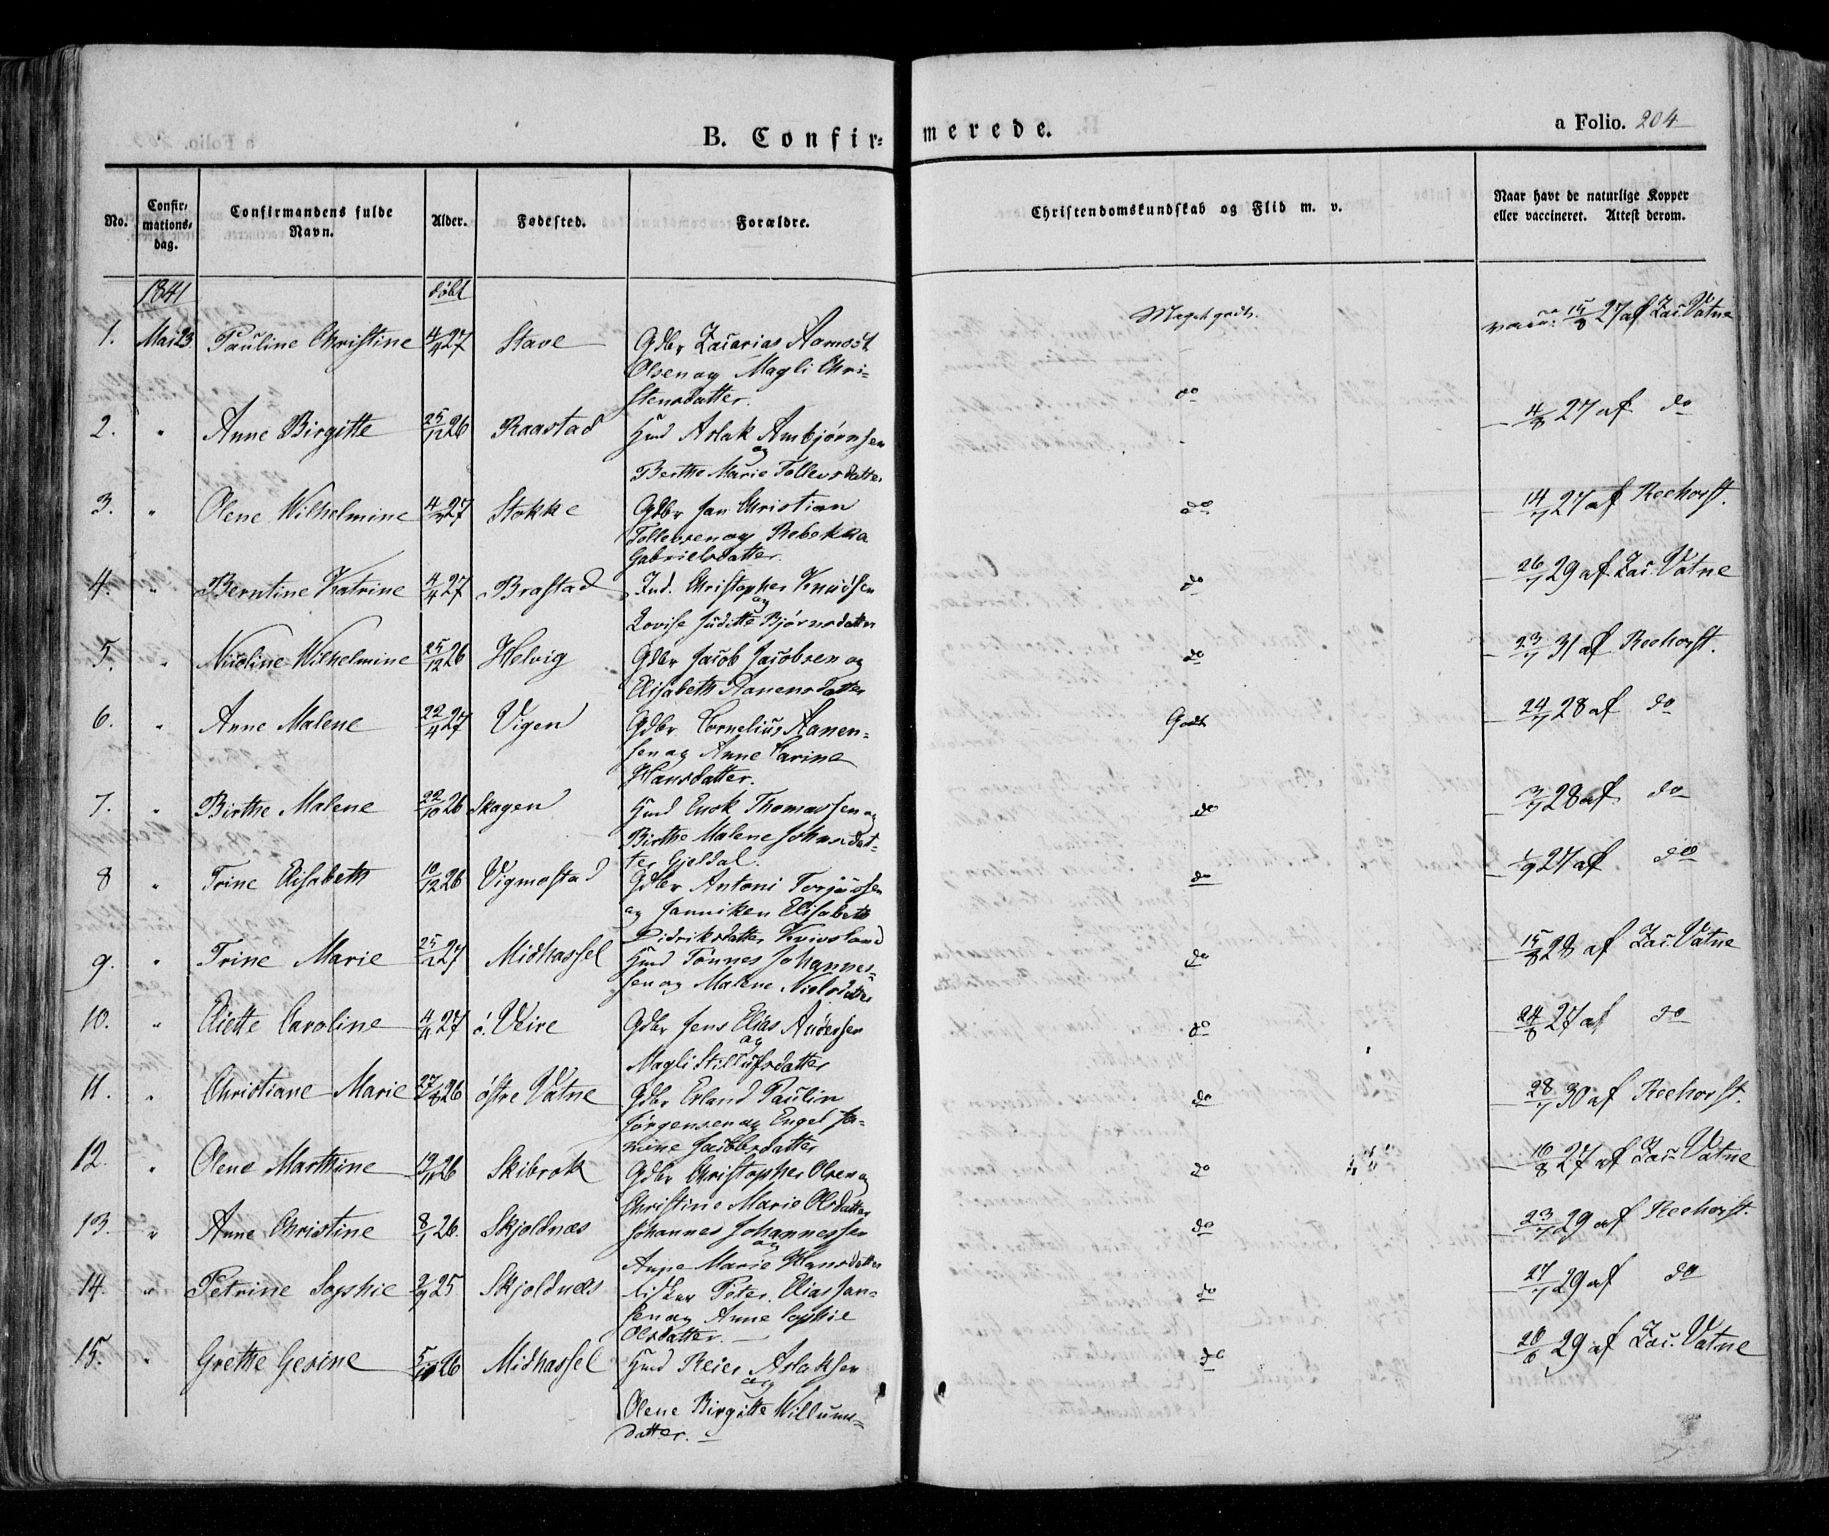 B. Confirmerede.
a Folio. 204
No. Confirmationsdag. Confirmandens fulde Navn. Alder. Fødested. Forældre. Christendomskundskab og Flid m. v. Naar havt de naturlige Kopper eller vaccineret. Attest derom.
1841 døbt
1. Mai 23 Pauline Christine 4/4 27 Stave Gdbr Zacarias Aamodt Meget godt. vacc: 15/8 27 af Zac: Vatne
Olsen og Magli Chri-
stensdatter.
2. " Anne Birgitte 25/12 26 Raastad Hmd Aslak Ambjørnsen do 4/8 27 af do
og
Berthe Marie Tollevsdatter
3. " Olene Wilhelmine 4/4 27 Stokke Gdbr Jan Christian do 14/7 27 af Reehorst.
Tollevsen og Rebekka
Gabrielsdatter.
4. " Berntine Katrine 4/4 27 Brastad Ind. Christopher Knudsen do 26/7 29 af Zac: Vatne
og
Lovise Juditte Bjørnsdatter
5. " Nicoline Wilhelmine 25/12 26 Helvig Gdbr Jacob Jacobsen og do 23/7 31 af Reehorst.
Elisabeth Aanensdatter
6. " Anne Malene 22/4 27 Vigen Gdbr Cornelius Aanen- Godt 24/7 28 af do
sen og Anne Carine
Hansdatter.
7. " Birthe Malene 22/10 26 Skagen Hmd Enok Thomassen og do 3/7 28 af do
Birthe Malene Johnsdat-
ter Gjeldal.
8 " Trine Elisabeth 10/12 26 Vigmostad Gdbr Antoni Torjussen do 1/9 27 af do
og Janniken Elisabeth
Didriksdatter
9. " Trine Marie 25/2 27 Midhassel Hmd Tønnes Johannes- do 15/8 28 af Zac: Vatne
sen og Malene Nielsdatter
10. " Eliette Caroline 4/4 27 ö. Veire Gdbr Jens Elias Andersen do 24/8 27 af do
og
Magli Stillufsdatter
11. " Christiane Marie 27/8 26 østre Vatne Gdbr Erland Paulin do 28/7 30 af Reehorst.
Jørgensen og Engel Ja-
mine Jacobsdatter
12. " Olene Marthine 19/11 26 Skibrok Gdbr Christopher Olsen og do 16/8 27 af Zac: Vatne
Christine Marie Olsdatter
13. " Anne Christine 8/1 26. Skjoldnæs Johannes Johannessen do 23/7 29 af Reehorst.
og
Anne Marie Hansdatter
14. " Petrine Sophie 2/9 25 Skjoldnæs Fisker Peter Elias Jan- do 27/7 29 af do
sen og Anne Sophie
Olsdatter.
15. " Grethe Gesine 5/10 26 Midhassel Hmd Reier Aslaksen do 20/8 29 af Zac: Vatne
og
Olene Birgitte Willums-
datter.